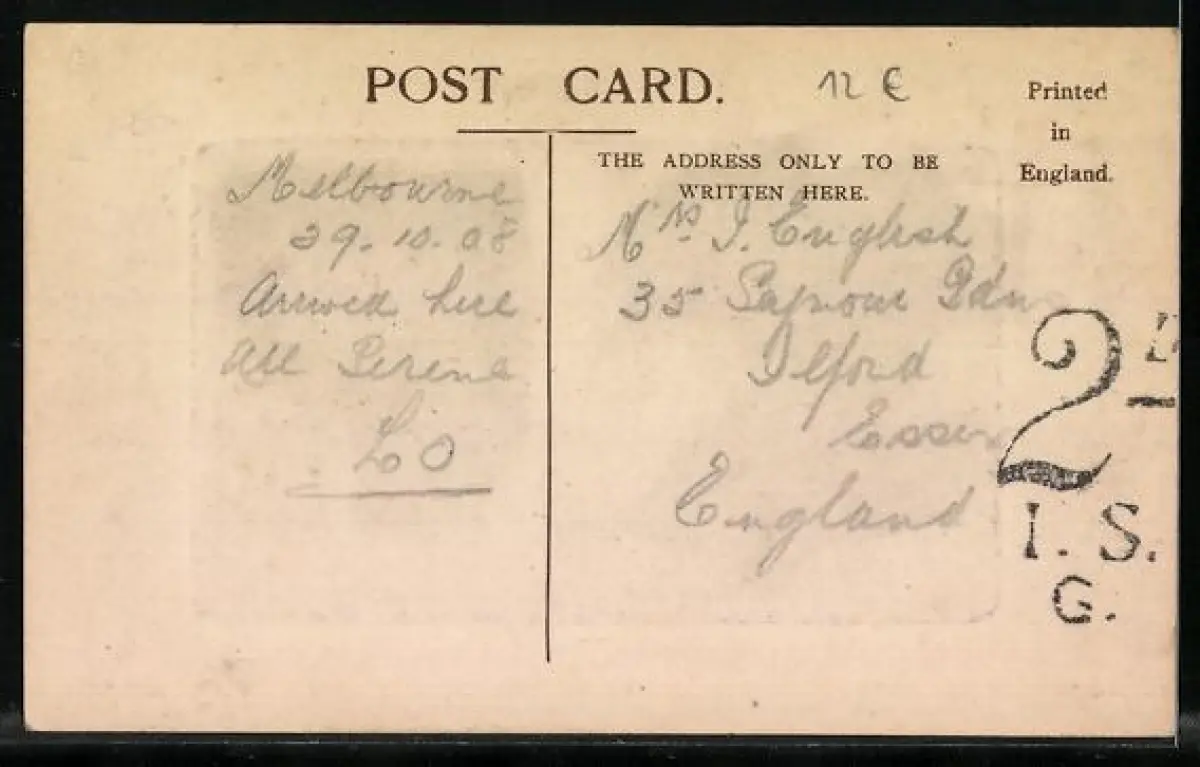 POST CARD.
12 €
Printed
in
England.
THE ADDRESS ONLY TO BE
WRITTEN HERE.
Melbourne
29.10.08
Arrived here
All Serene
Mrs I. English
35 Gdns
Ilford
Essex
England
2D
I. S.
G.